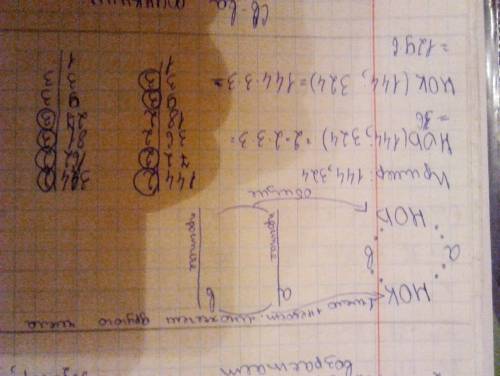 возрастает
недост. множител другого числа
НОК
a b
a b
простые простые
НОД
общие
Пример: 144, 324
НОД(144; 324) = 2·2·3·3=
= 36
НОК(144, 324) = 144·3·3=
= 1296
144 2
72 2
36 2
18 2
9 3
3 3
1
324 2
162 2
81 3
27 3
9 3
3 3
1
Св-ва